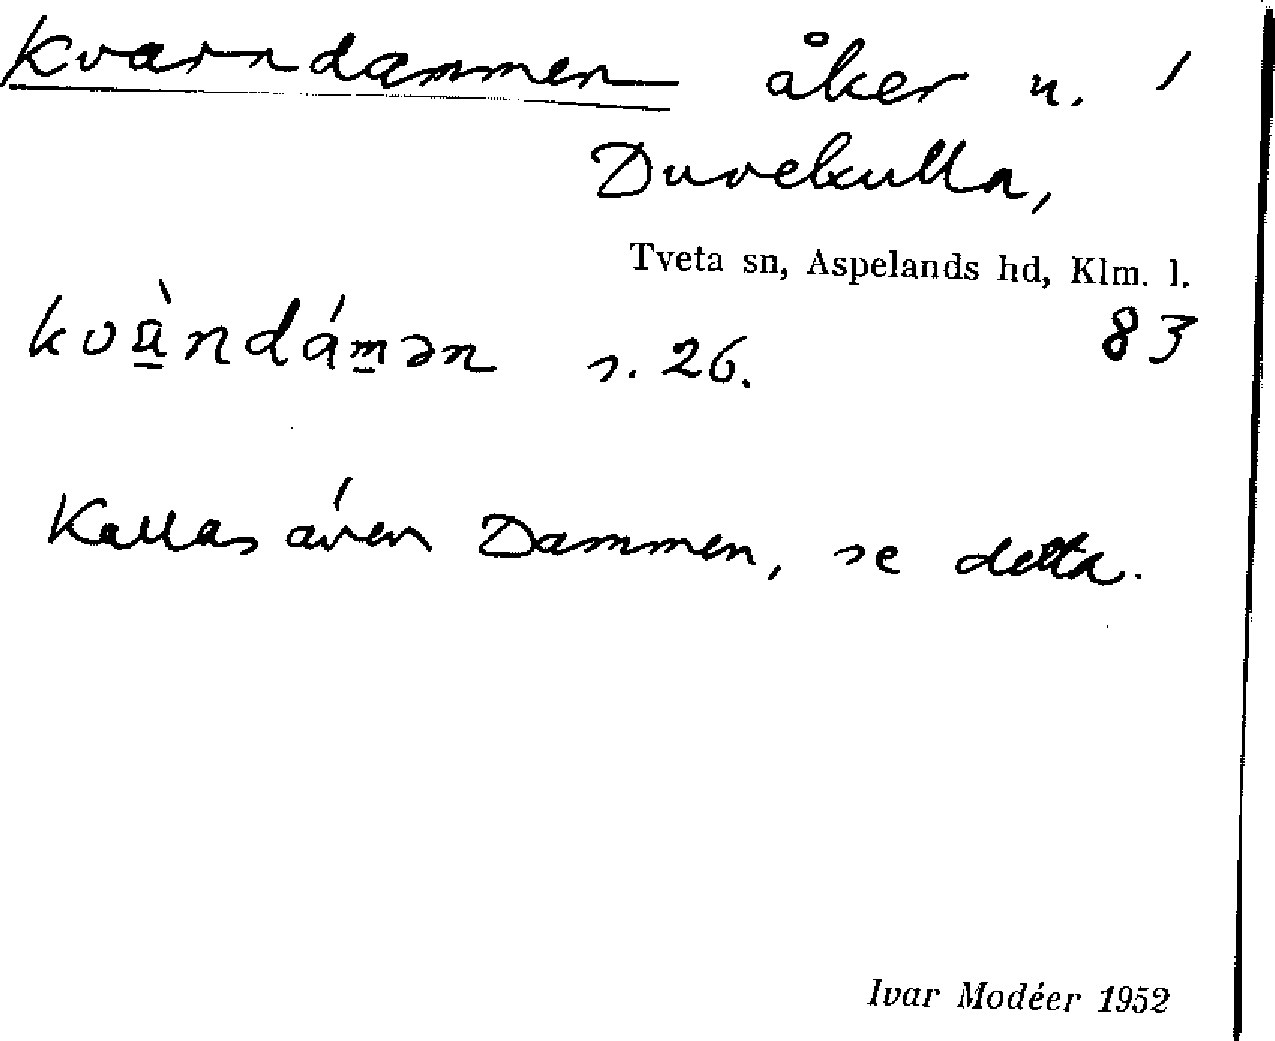 Kvarndammen åker n. 1
Duvekulla,
Tveta sn, Aspelands hd, Klm. l.
kvà̱ndám̱ən s. 26. 83
Kallas även Dammen, se detta.
Ivar Modéer 1952